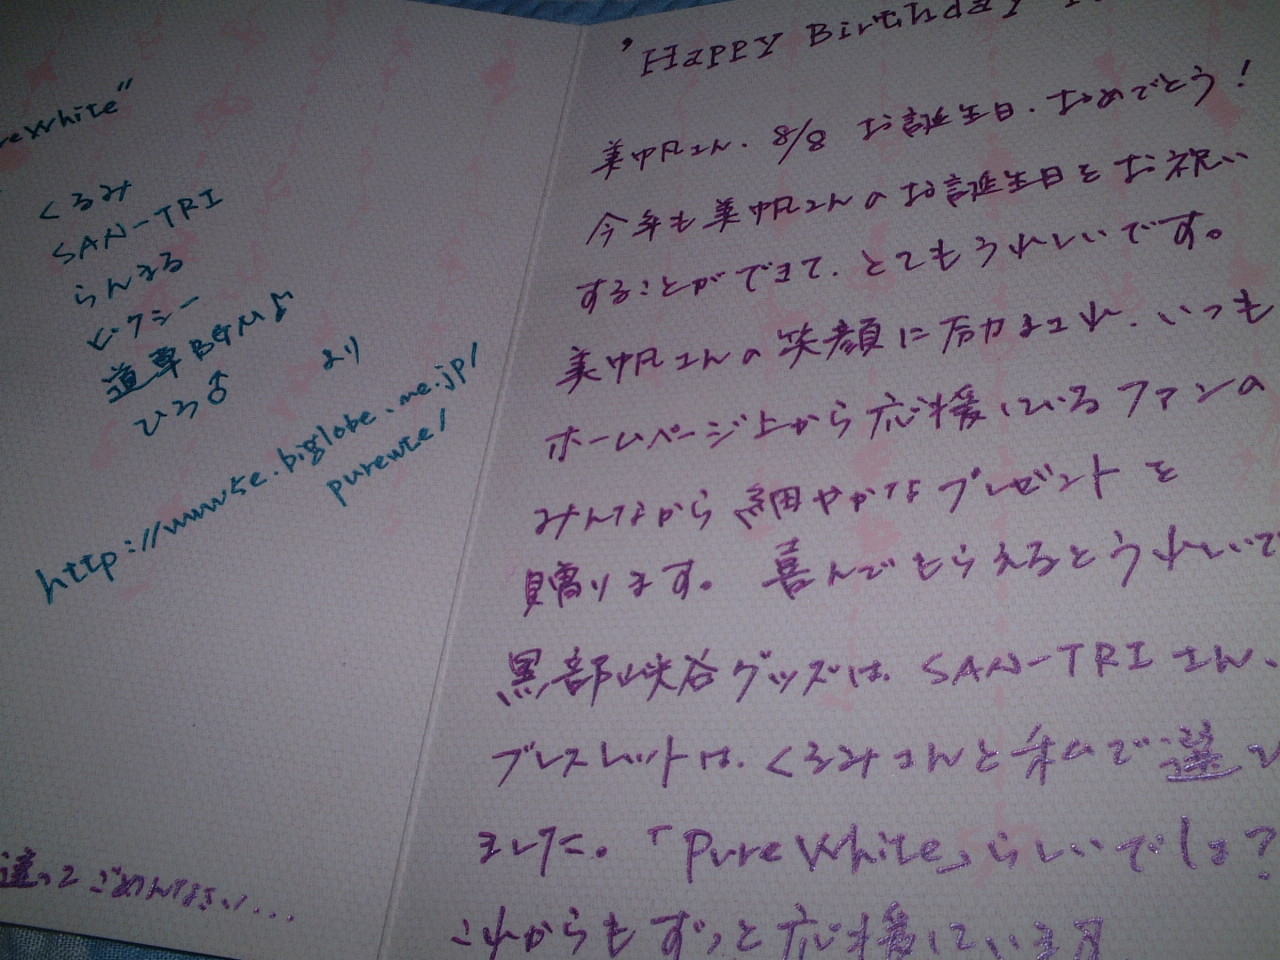 reWhite"
くるみ
SAN-TRI
らんまる
ビクシー
道草BGM♪
ひろ♂ より
http://www5e.biglobe.ne.jp/
purewte/
違ってごめんなさい...
'Happy Birthday
美帆さん、8/8 お誕生日、おめでとう!
今年も美帆さんのお誕生日をお祝い
することができて、とてもうれしいです。
美帆さんの笑顔に励まされ、いつも
ホームページ上から応援しているファンの
みんなから細やかなプレゼントを
贈ります。喜んでもらえるとうれしいで
黒部峡谷グッズは、SAN-TRIさん、
ブレスレットは、くるみさんと私で選び
ました。「Pure White」らしいでしょ?
これからもずっと応援しています